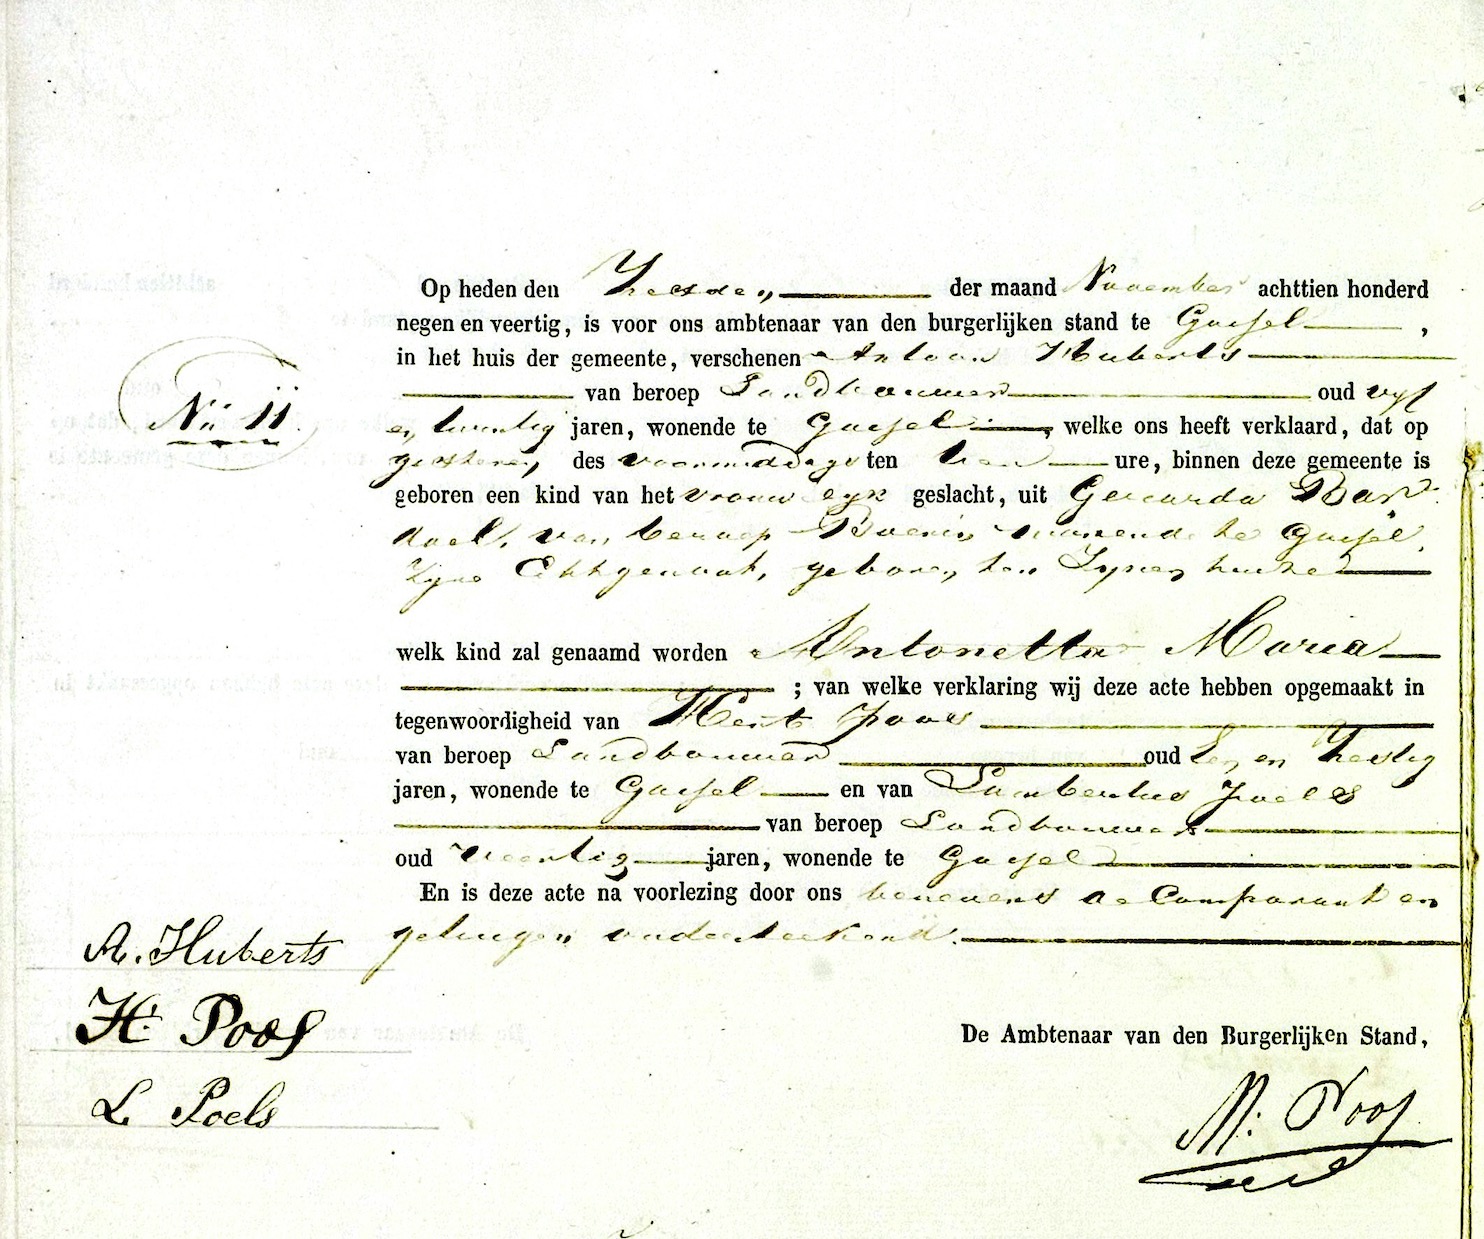 Op heden den Zesden der maand November achttien honderd
negen en veertig, is voor ons ambtenaar van den burgerlijken stand te Gassel,
in het huis der gemeente, verschenen Antoon Huberts
van beroep Landbouwer oud vyf
Nº 11
en twintig jaren, wonende te Gassel, welke ons heeft verklaard, dat op
gisteren, des voormiddags ten tien ure, binnen deze gemeente is
geboren een kind van het vrouwelyk geslacht, uit Gerarda
van beroep Boerin wonende te Gassel,
zyne Echtgenoot, geboren ten Zynen huize
welk kind zal genaamd worden Antonetta Maria
; van welke verklaring wij deze acte hebben opgemaakt in
tegenwoordigheid van Hent Poos
van beroep Landbouwer oud een en Zestig
jaren, wonende te Gassel en van Lambertus Poels
van beroep Landbouwer
oud veertig jaren, wonende te Gassel
En is deze acte na voorlezing door ons benevens de Comparant en
getuigen onderteekend.
A. Huberts
H. Poos
L Poels
De Ambtenaar van den Burgerlijken Stand,
M: Poos